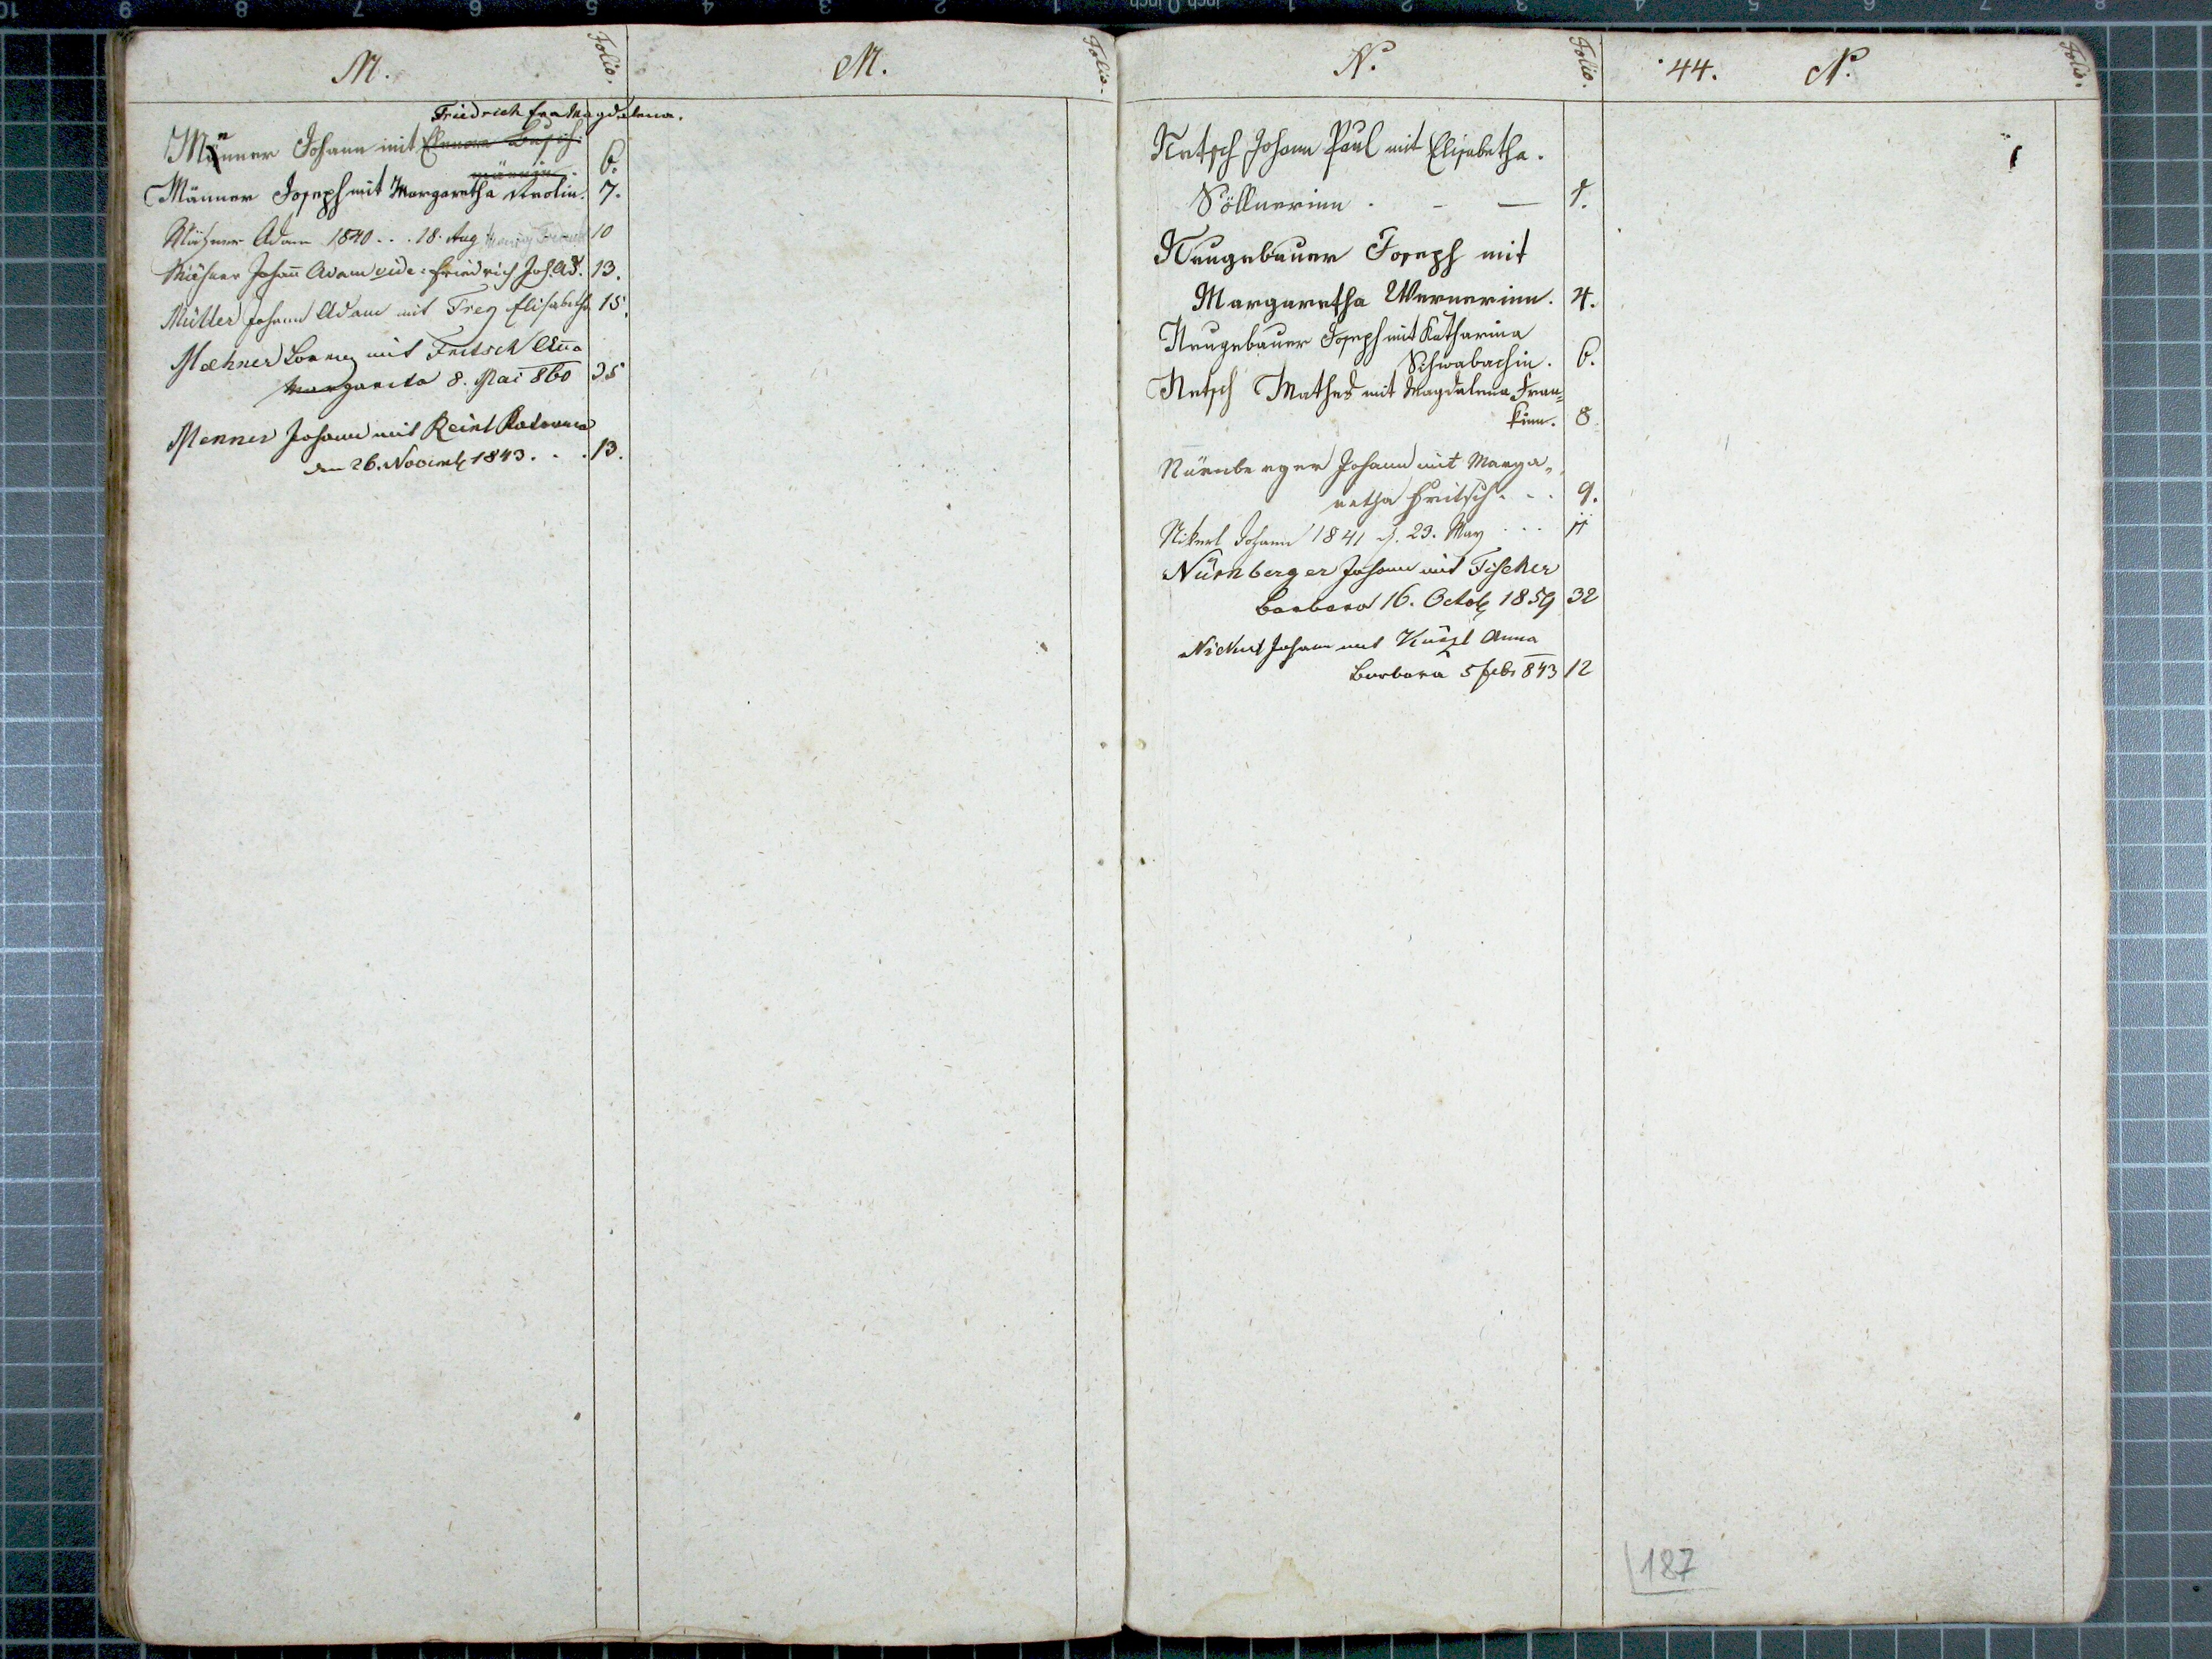 M.
Folio.
Friedrich Eva Magdalena.
Männer Johann mit Elenora
männin. 6.
Männer Joseph mit Margaretha 7.
Mähner Adam 1840 . . . 18. Aug 10
Mähner Johañ Adam vide: Friedrich Joh. Ad. 13.
Müller Johann Adam mit Frey Elisabetha 15.
Maehner Lorenz mit Fritsch Aña
Margareta 8. Mai 860 35
Menner Johann mit Reinl
den 26. Novemb 1843 . . . 13.
M.
Folio.
N.
Folio.
Netsch Johann Paul mit Elisabetha.
Söllnerinn . - — 1.
Neugebauer Joseph mit
Margaretha Wernerinn. 4.
Neugebauer Joseph mit Katharina
Schwabachin. 6.
Netsch Mathes mit Magdalena Fran=
kinn. 8.
Nürnberger Johann mit Marga=
retha Fritsch . . . 9.
Nikerl Johann 1841 d. 23. May . . . 11
Nürnberger Johann mit Fischer
Barbara 16. Octob 1859 32
Johann mit Anna
Barbara 5 feb 843 12
44. N.
Folio.
187